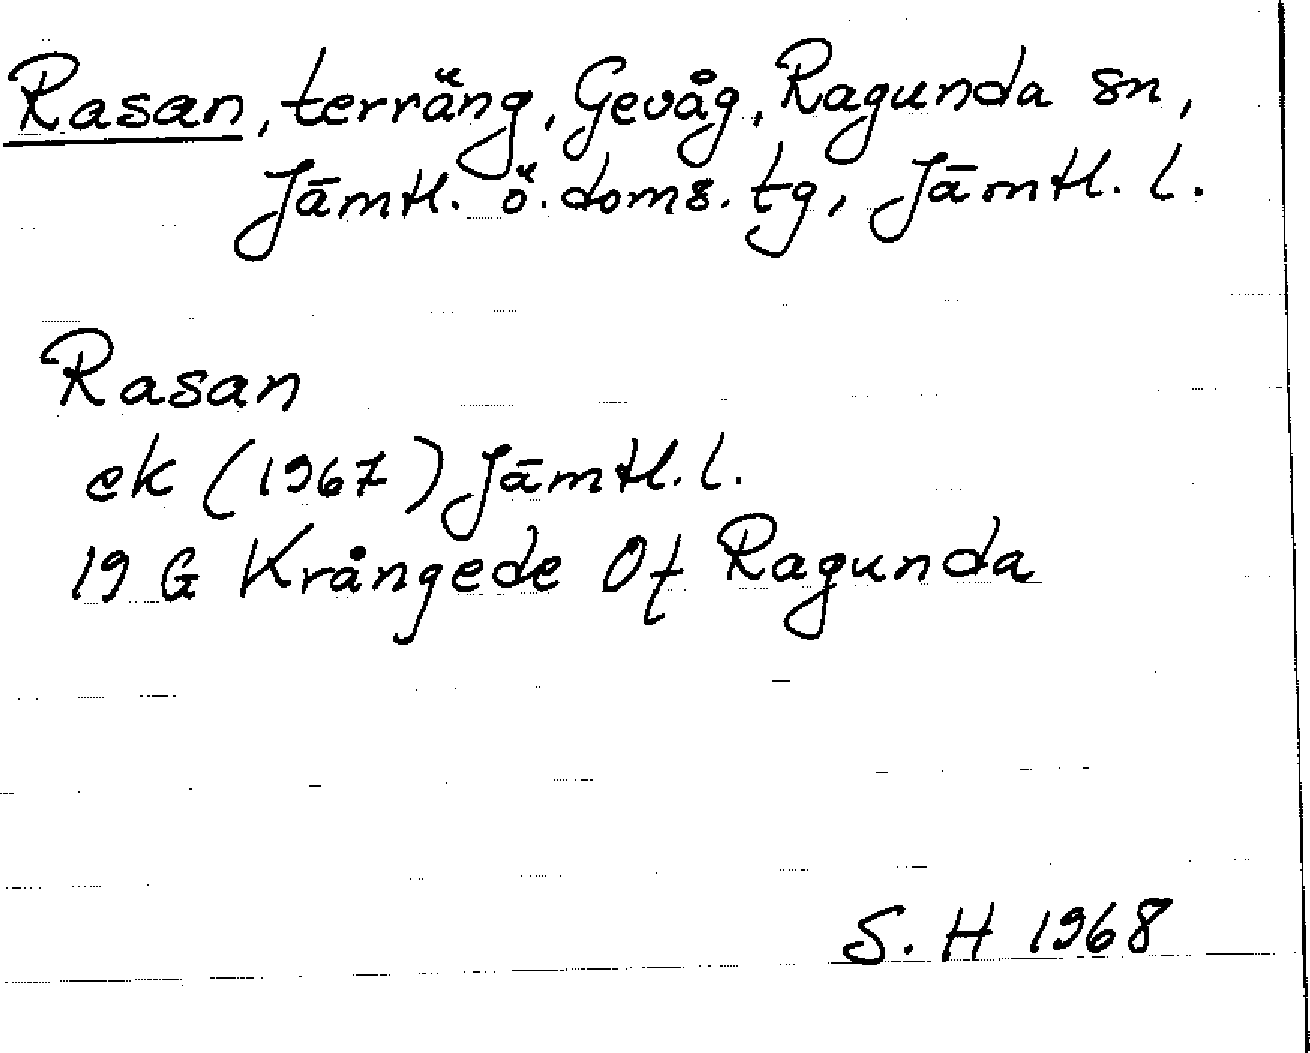 Rasan, terräng, Gevåg, Ragunda sn,
Jämtl. ö. doms. tg, Jämtl. l.
Rasan
ek (1967) Jämtl. l.
19 G Krångede Of Ragunda
S. H 1968